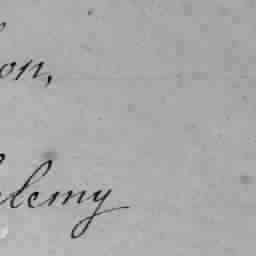 on,
lemy